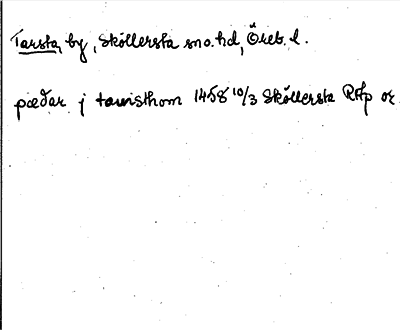 Tarsta, by, Sköllersta sn o. hd, Öreb. l.
pædar j tawisthom 1458 10/3 Sköllersta RAp or